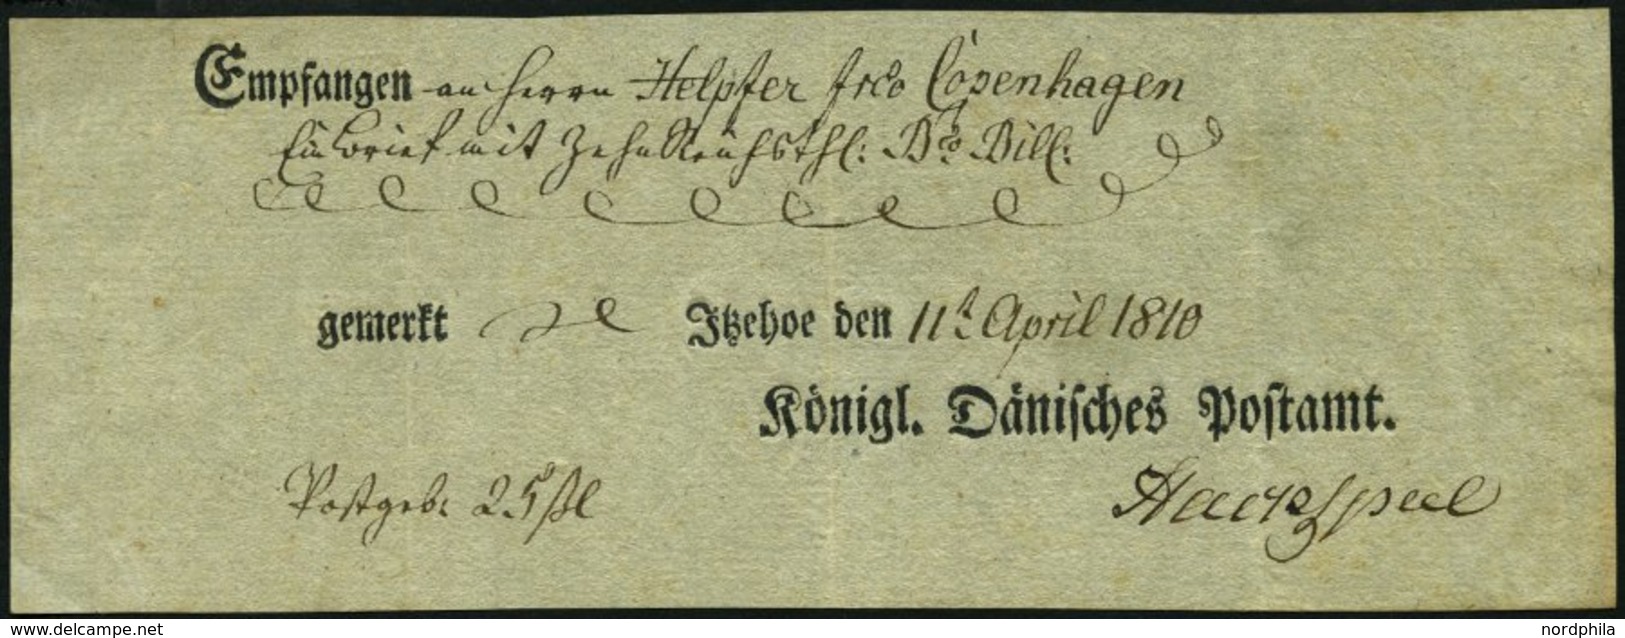 Empfangen an Herrn Helpfer frco Copenhagen
Ein Brief mit Zehn Reichsthl: Bco Bill:
gemerkt Itzehoe den 11t April 1810
Königl. Dänisches Postamt.
Postgeb: 25 ßl
www.delcampe.net
nordphila